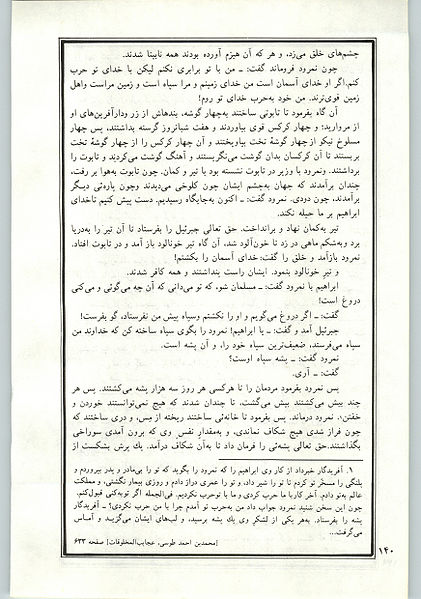 چشم‌های خلق می‌زد، و هر که آن هیزم آورده بودند همه نابینا شدند.
چون نمرود فروماند گفت: ـ من با تو برابری نکنم لیکن با خدای تو حرب
کنم. اگر او خدای آسمان است من خدای زمینم و مرا سپاه است و زمین مراست واهل
زمین قوی‌ترند. من خود به‌حرب خدای تو روم!
آن گاه بفرمود تا تابوتی ساختند به‌چهار گوشه، بندهاش از زر ودارآفرین‌های او
از مروارید؛ و چهار کرکس قوی بیاوردند و هفت شبانروز گرسنه بداشتند، پس چهار
مسلوخ نیکو از چهار گوشهٔ تخت بیاویختند و آن چهار کرکس را از چهار گوشهٔ تخت
بر بستند تا آن کرکسان بدان گوشت می‌نگریستند و آهنگ گوشت می‌کردند و تابوت را
برداشتند. ونمرود با وزیر در تابوت نشسته بود با تیر و کمان. چون تابوت به‌هوا بر رفت،
چندان برآمدند که جهان به‌چشم ایشان چون کلوخی می‌دیدند وچون پاره‌ئی دیگر
برآمدند، چون دودی. نمرود گفت: ـ اکنون به‌جایگاه رسیدیم. دست پیش کنیم تاخدای
ابراهیم بر ما حیله نکند.
تیر به‌کمان نهاد و برانداخت. حق تعالی جبرئیل را بفرستاد تا آن تیر را به‌دریا
برد وبه‌شکم ماهی در زد تا خون‌آلود شد، آن گاه تیر خونالود باز آمد و در تابوت افتاد.
نمرود بازآمد و خلق را گفت: خدای آسمان را بکشتم!
و تیرِ خونالود بنمود. ایشان راست بنداشتند و همه کافر شدند.
ابراهیم با نمرود گفت: ـ مسلمان شو، که تو می‌دانی که آن چه می‌گوئی و می‌کنی
دروغ است!
گفت: ـ اگر دروغ می‌گویم و او را نکشتم وسپاه پیش من نفرستاد، گو بفرست!
جبرئیل آمد و گفت: ـ یا ابراهیم! نمرود را بگوی سپاه ساخته کن که خداوند من
سپاه می‌فرستد، ضعیف‌ترین سپاه خود را، و آن پشه است.
نمرود گفت: ـ پشه سپاه اوست؟
گفت: ـ آری.
پس نمرود بفرمود مردمان را تا هرکسی هر روز سه هزار پشه می‌کشتند. پس هر
چند بیش می‌کشتند بیش می‌گشت، تا چندان شدند که هیچ نمی‌توانستند خوردن و
خفتن۱. نمرود درماند. پس بفرمود تا خانه‌ئی ساختند ریخته از مس، و دری ساختند که
چون فراز شدی هیچ شکاف نماندی، و به‌مقدارِ نفسِ وی که برون آمدی سوراخی
بگذاشتند. حق تعالی پشه‌ئی را فرمان داد تا به‌آن شکاف درآمد. یك پرش بشکست از
۱. آفریدگار خبرداد از کار وی ابراهیم را که نمرود را بگوید که تو را بی‌مادر و پدر بپروردم و
پلنگی را مسخّر تو کردم تا تو را شیر داد، و تو را عمری دراز دادم و روزی بیمار نگشتی، و مملکت
عالم به‌تو دادم. آخر کار با ما حرب کردی و ما با توحرب نکردیم. فی‌الجمله اگر توبه‌کنی قبول‌کنم.
چون این سخن شنید نمرود جواب داد من به‌حرب تو آمدم چرا با من حرب نکردی؟ ـ آفریدگار
پشه را بفرستاد. به‌هر یکی از لشکرِ وی یك پشه برسید، و لب‌های ایشان می‌گزید و آماس
می‌گرفت...
[محمدبن احمد طوسی، عجایب‌المخلوقات] صفحه ۶۳۳
۱۴۰